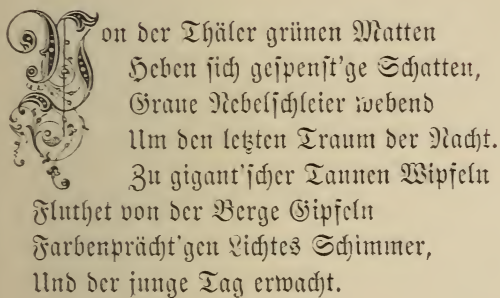 Von der Thäler grünen Matten
Heben sich gespenst'ge Schatten,
Graue Nebelschleier webend
Um den letzten Traum der Nacht.
Zu gigant'scher Tannen Wipfeln
Fluthet von der Berge Gipfeln
Farbenprächt'gen Lichtes Schimmer,
Und der junge Tag erwacht.